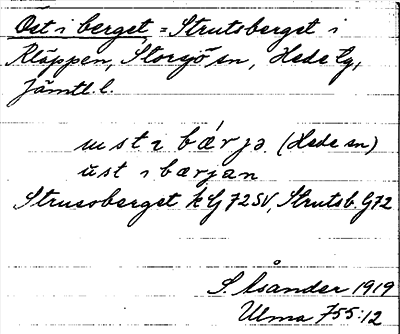 Öst i berget = Strutsberget i
Kläppen, Storsjö sn, Hede tg,
Jämtl. l.
ust i bárja. (Hede sn)
üst i bærjan
Strussberget k Lj 72 SV, Strutsb. G 72
S. Åsander 1919
Ulma 755:12